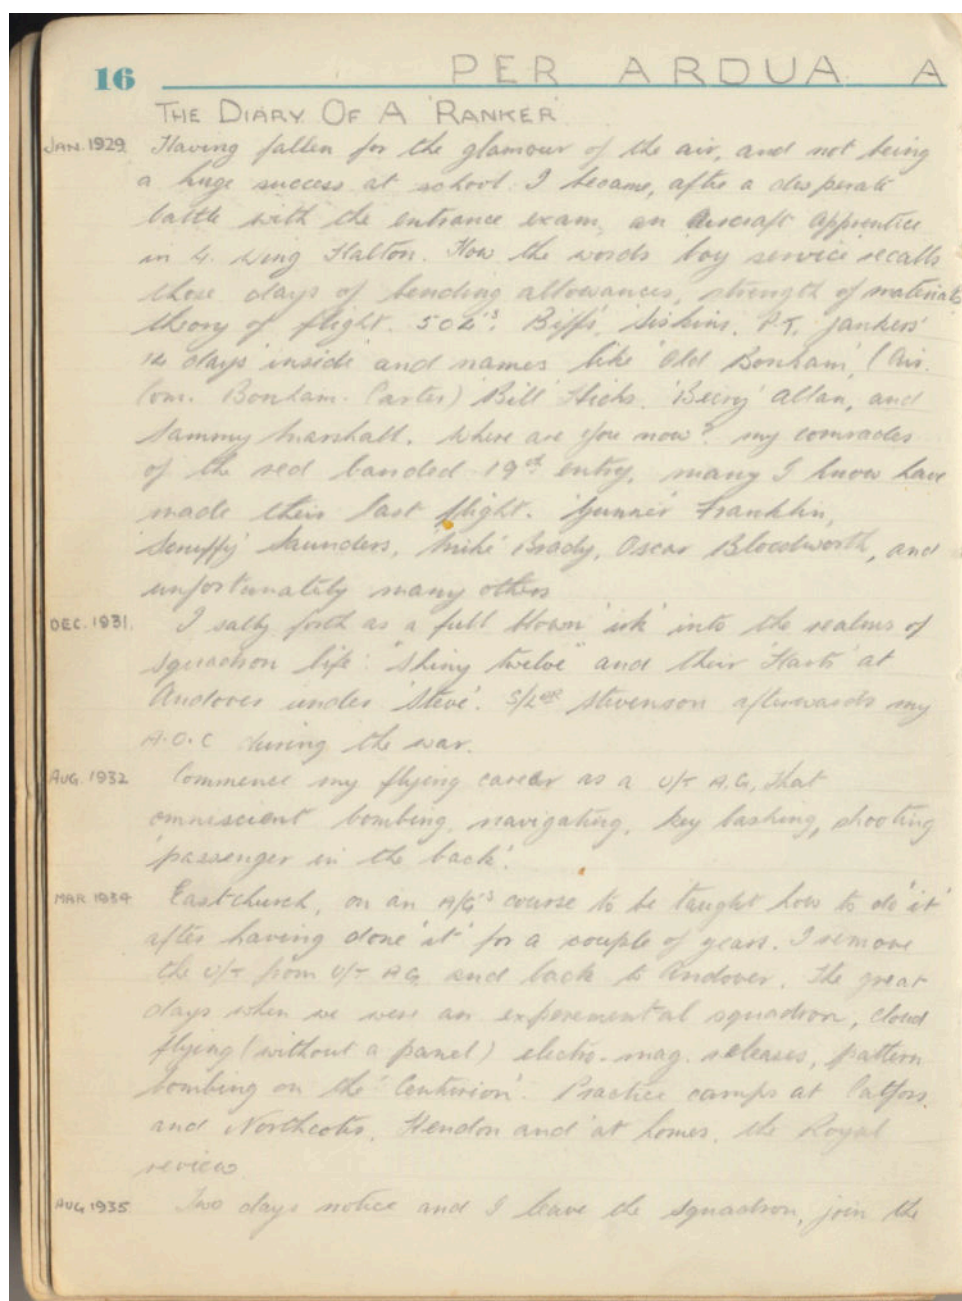 16 PER ARDUA A
THE DIARY OF A 'RANKER'.
JAN. 1929. Having fallen for the glamour of the air, and not being
a huge success at school I became, after a desperate
battle with the entrance exam, an Aircraft Apprentice
in 4. Wing Halton. How the words 'boy service' recalls
those days of bending allowances, strength of materials
theory of flight. 504's. Biffs', Siskins, P.T., 'jankers'
14 days 'inside' and names like 'Old Bonham', (Air.
Com. Bonham-Carter) 'Bill' Hicks. 'Beery' Allan, and
Sammy Marshall. Where are you now? my comrades
of the red banded 19th entry, many I know have
made their last flight. 'Gunner' Franklin,
'Scruffy' Saunders, 'Mike' Brady, Oscar Bloodworth, and
unfortunately many others
DEC. 1931. I sally forth as a full blown 'erk' into the realms of
squadron life. "Shiny twelve" and their 'Harts' at
Andover under 'Steve'. S/Ldr Stevenson afterwards my
A.O.C during the war.
AUG. 1932 Commence my flying career as a U/T A.G, that
omniscient bombing, navigating, key bashing, shooting
'passenger in the back'.
MAR 1934 Eastchurch, on an A/G's course to be taught how to do 'it'
after having done 'it' for a couple of years. I remove
the U/T from U/T AG and back to Andover. The great
days when we were an experemental squadron, cloud
flying (without a panel) electro-mag. releases, pattern
bombing on the 'Centurion'. Practice camps at Catfoss.
and Northcotes, Hendon and at homes, the Royal
review
AUG 1935 Two days notice and I leave the squadron, join the